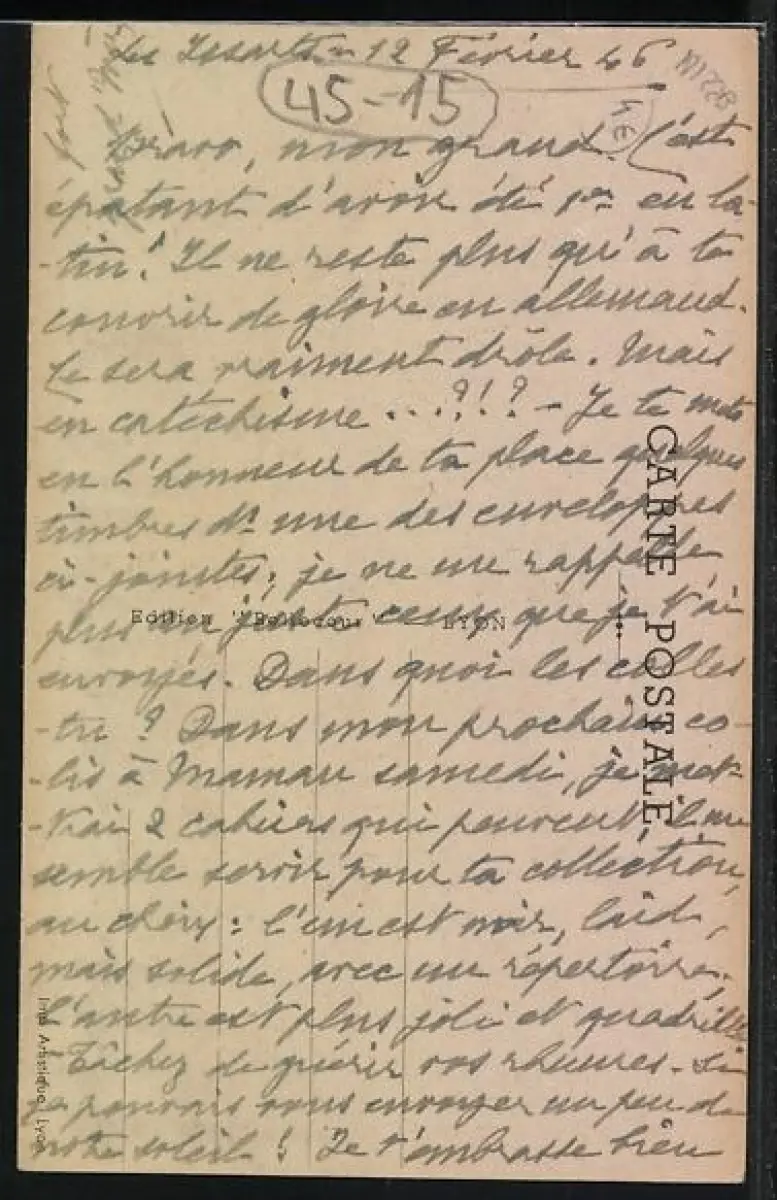 Les Issarts 12 Février 46
45-15
4 €
Bravo, mon grand. C'est
épatant d'avoir été 1er en la-
-tin! Il ne reste plus qu'à te
couvrir de gloire en allemand.
Ce sera vraiment drôle. Mais
en catéchisme ...?!? - Je te mets
en l'honneur de ta place quelques
timbres ds une des enveloppes
ci-jointes; je ne me rappelle
plus au juste ceux que je t'ai
envoyés. Dans quoi les colles
-tu? Dans mon prochain co-
-lis à Maman samedi, je met-
-trai 2 cahiers qui peuvent, il me
semble servir pour ta collection,
au choix: l'un est noir, laid,
mais solide, avec un répertoire;
l'autre est plus joli et quadrillé
- Tâchez de guérir vos rhumes. Si
je pouvais vous envoyer un peu de
notre soleil! Je t'embrasse bien
fort
CARTE POSTALE
Edition "Bellecour" - LYON
Imp. Artistique, Lyon